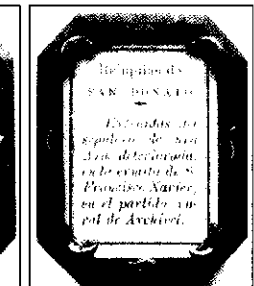 Reliquias de
SAN DONATO
Extraidas del
sepulcro de una
deteriorada,
en la ermita de S.
Francisco Xavier,
en el partido
de Archivel.